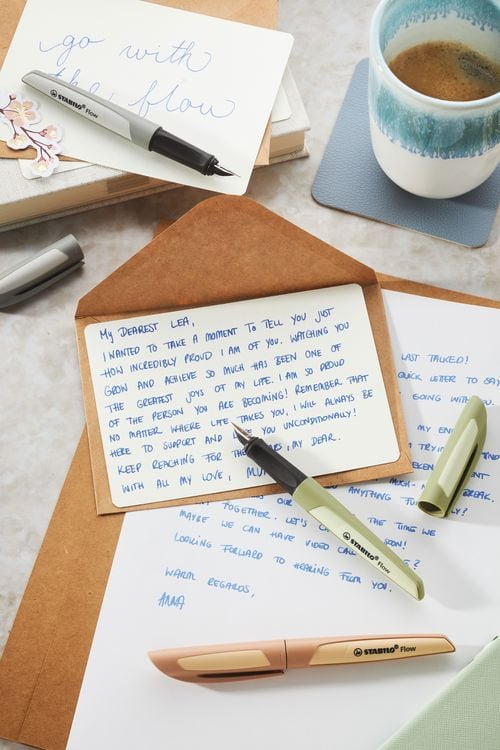 go with
the flow
STABILO Flow
My DEAREST LEA,
I WANTED TO TAKE A MOMENT TO TELL YOU JUST
HOW INCREDIBLY PROUD I AM OF YOU. WATCHING YOU
GROW AND ACHIEVE SO MUCH HAS BEEN ONE OF
THE GREATEST JOYS OF MY LIFE. I AM SO PROUD
OF THE PERSON YOU ARE BECOMING! REMEMBER THAT
NO MATTER WHERE LIFE TAKES YOU, I WILL ALWAYS BE
HERE TO SUPPORT AND YOU UNCONDITIONALLY!
KEEP REACHING FOR THE MY DEAR.
WITH ALL MY LOVE,
LAST TALKED!
QUICK LETTER TO SAY
GOING WITH YOU.
MY
MUCH- BREAK.
ANYTHING
TOGETHER. LET'S THE TIME WE
MAYBE WE CAN HAVE VIDEO SOON!
LOOKING FORWARD TO HEARING FROM YOU.
WARM REGARDS,
ANNA
STABILO Flow
STABILO Flow